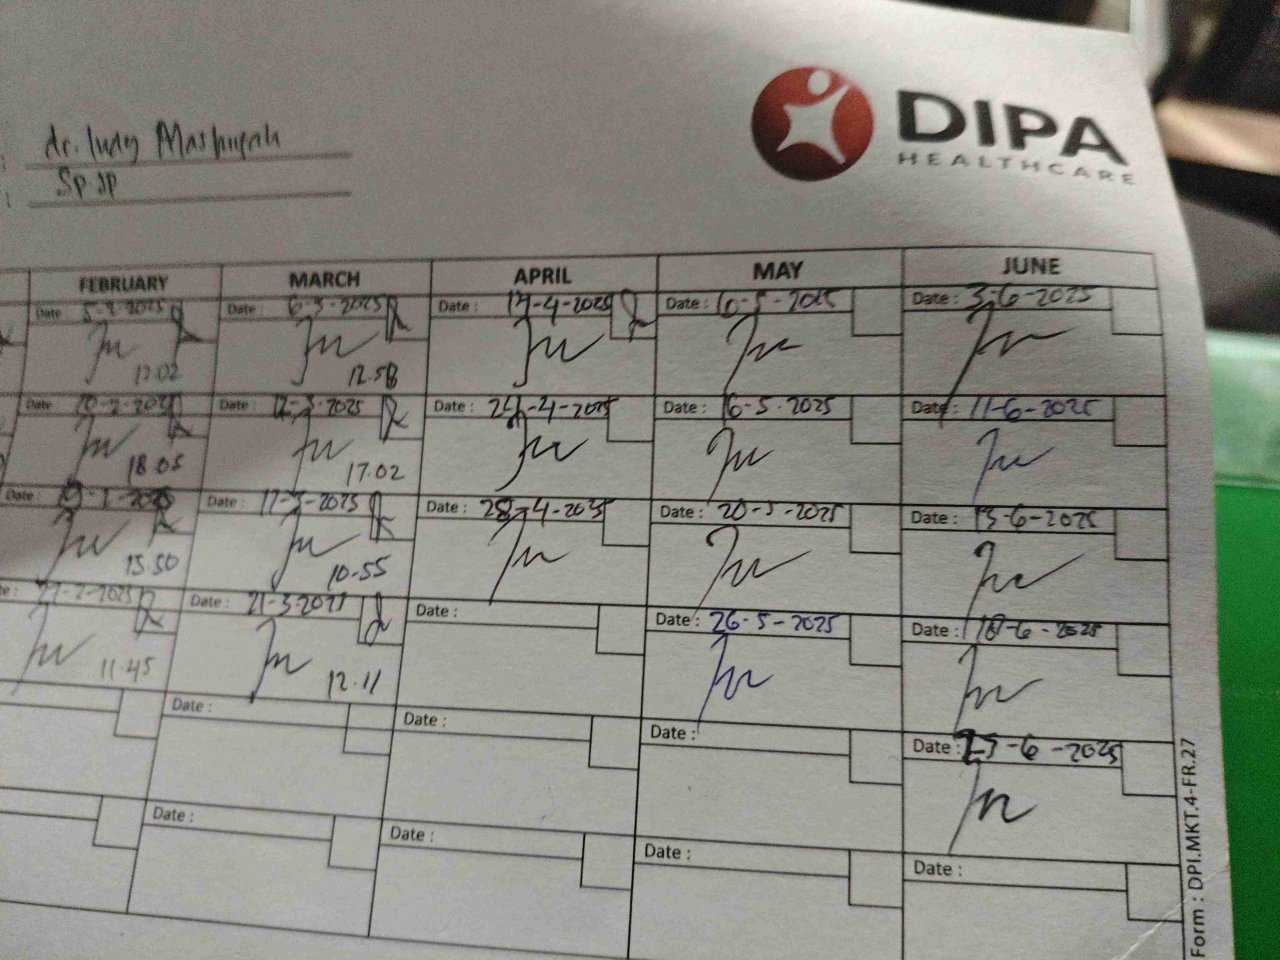 DIPA
HEALTHCARE
: dr.
: Sp.JP
FEBRUARY MARCH APRIL MAY JUNE
Date 5-2-2025 Date : 6-3-2025 Date : Date : 6-5-2025 Date : 3-6-2025
12.58
Date Date : 12-3-2025 Date : 24-4-2025 Date : 16-5-2025 Date : 11-6-2025
18.05 17.02
Date : Date : 17-3-2025 Date : 28-4-2025 Date : 20-5-2025 Date : 13-6-2025
15.50 10.55
27-2-2025 Date : 21-3-2025 Date : Date : 26-5-2025 Date : 18-6-2025
11.45 12.11
Date : Date : Date : Date : 25-6-2025
Date : Date : Date : Date :
Form : DPI.MKT.4-FR.27